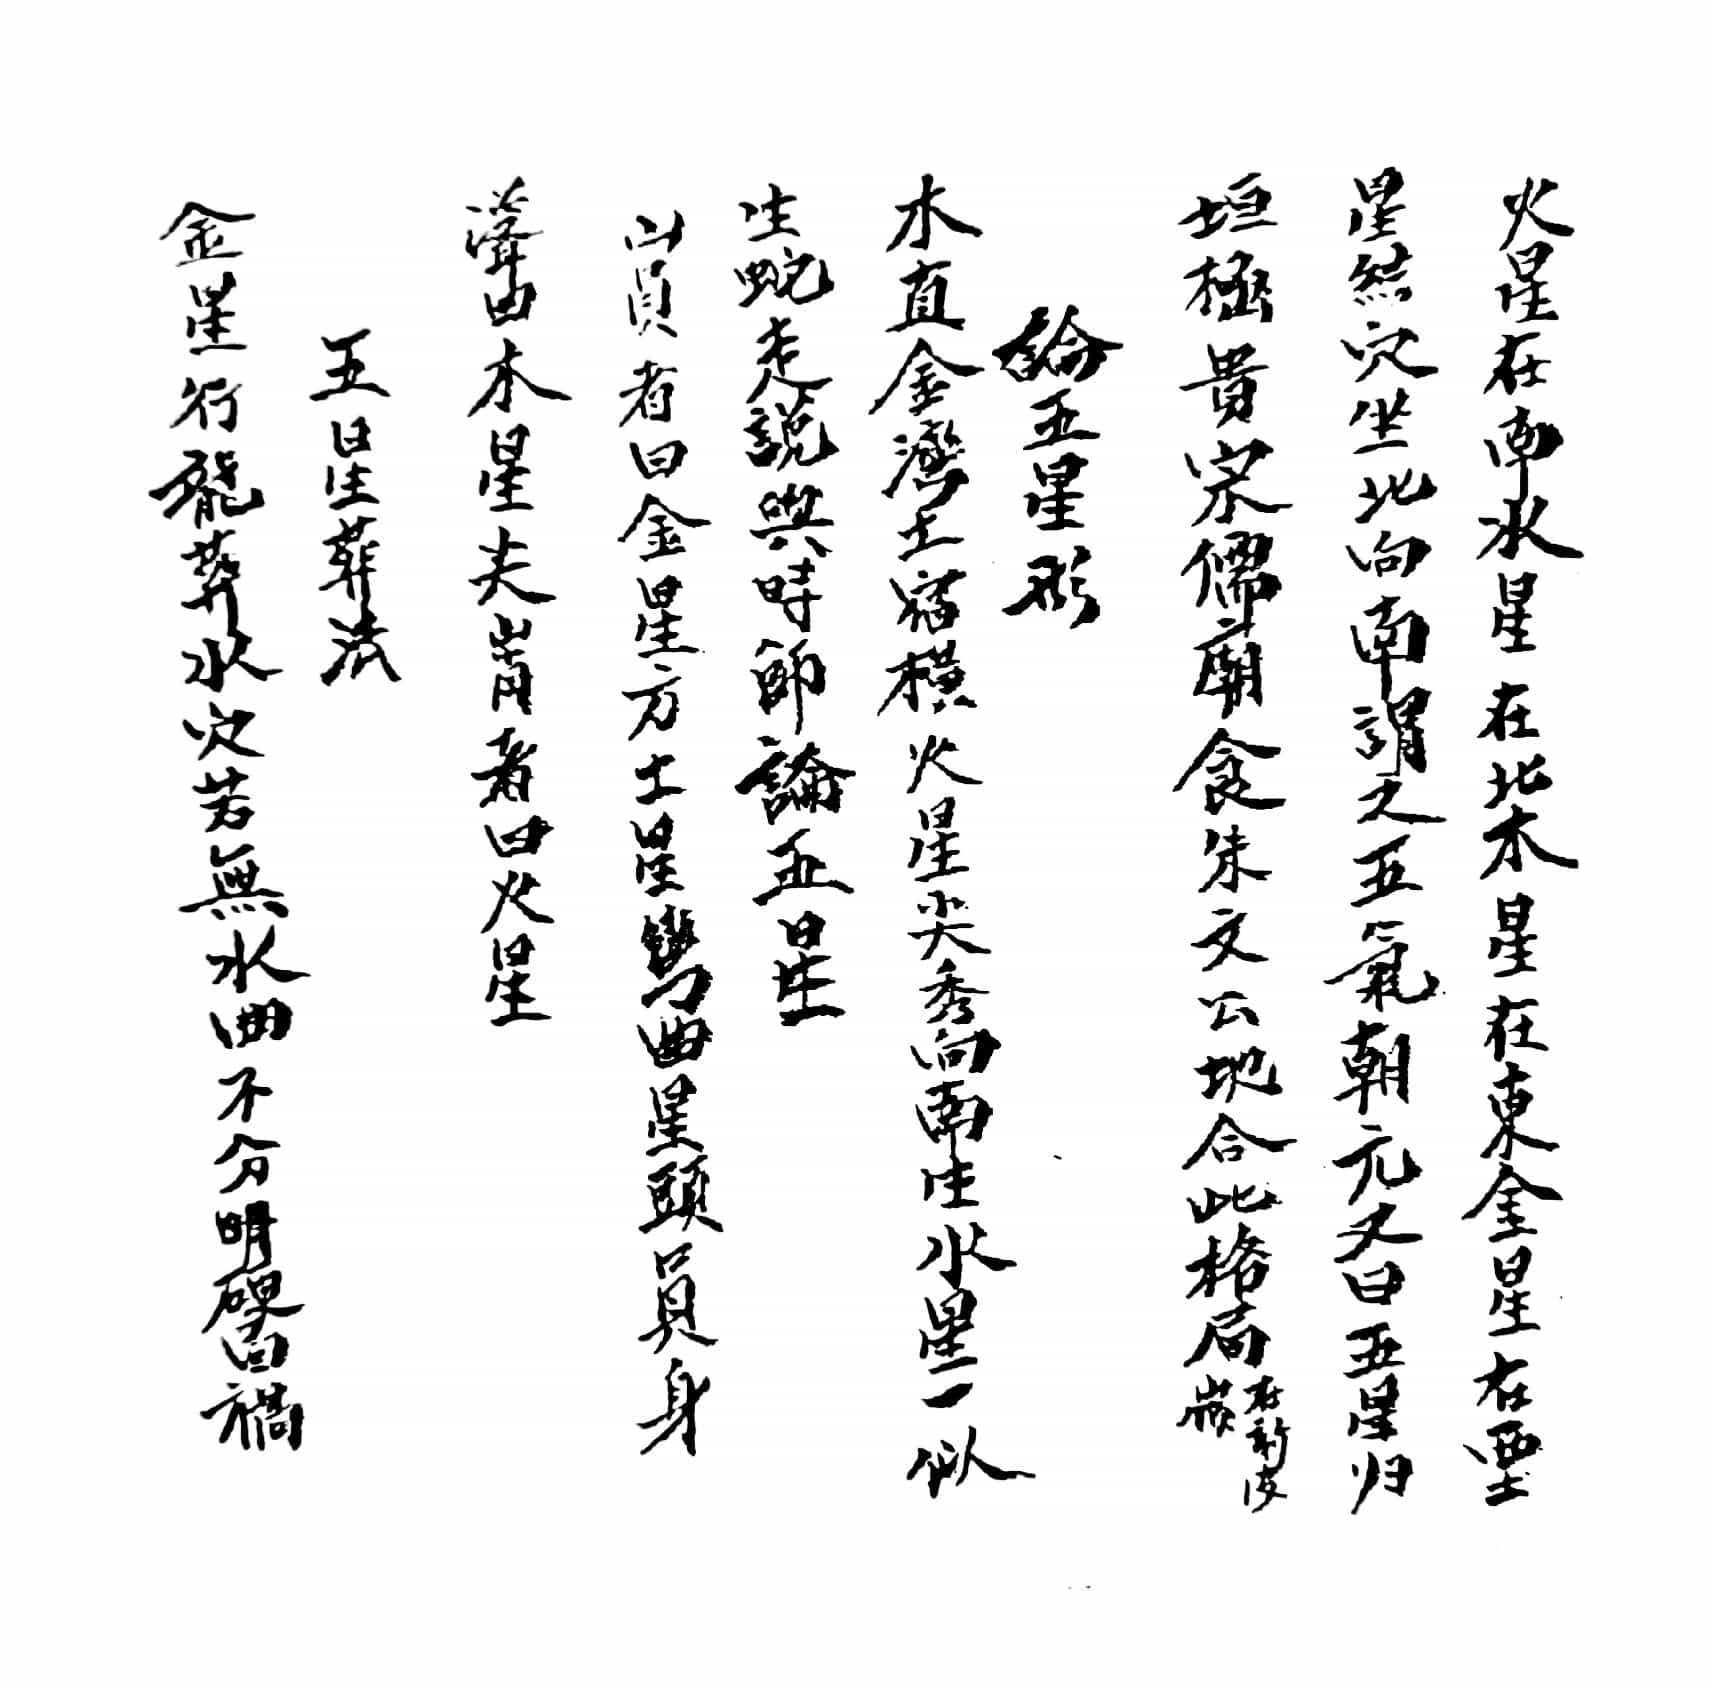 火星在南水星在北木星在東金星在西土
星結穴坐北向南謂之五氣朝元又曰五星归
垣極貴宋儒廟食朱文公地合此格局
論五星形
木直金灣土宿橫火星尖秀向南生水星一似
生蛇走說與時師論五星
山員者曰金星方土星彎曲星頭員身
聳曲木星尖者曰火星
五星葬法
金星行龍葬水穴若無水曲不分明禍